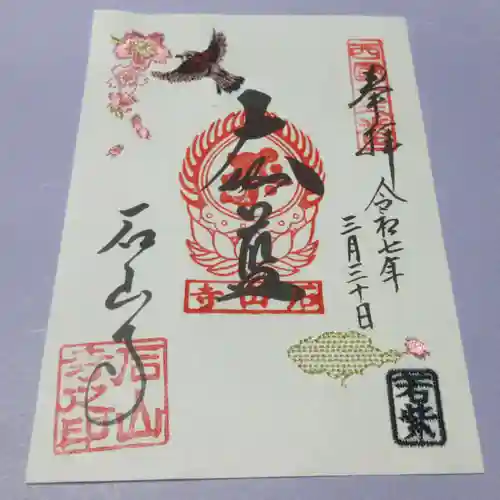 奉拝
令和七年
三月二十日
若紫
石山寺
石山寺
石山
寺之印